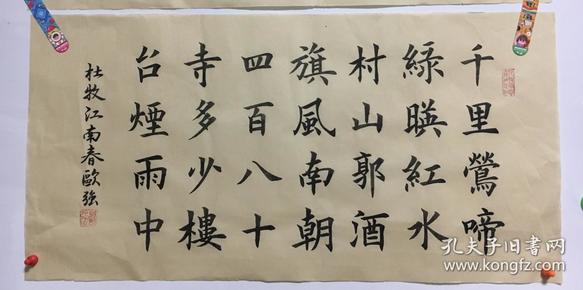 千里鶯啼
綠暎紅水
村山郭酒
旗風南朝
四百八十
寺多少樓
台煙雨中
杜牧江南春歐強
孔夫子旧书网
www.kongfz.com